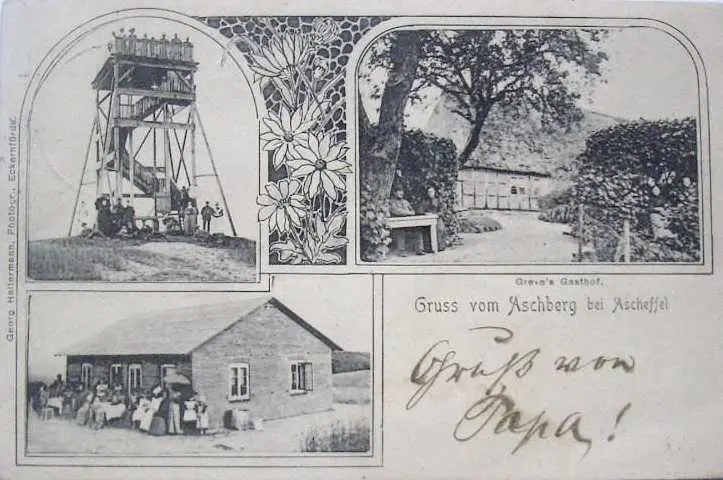 Georg Haltermann, Photogr., Eckernförde.
Greve's Gasthof.
Gruss vom Aschberg bei Ascheffel
Gruß von
Papa!